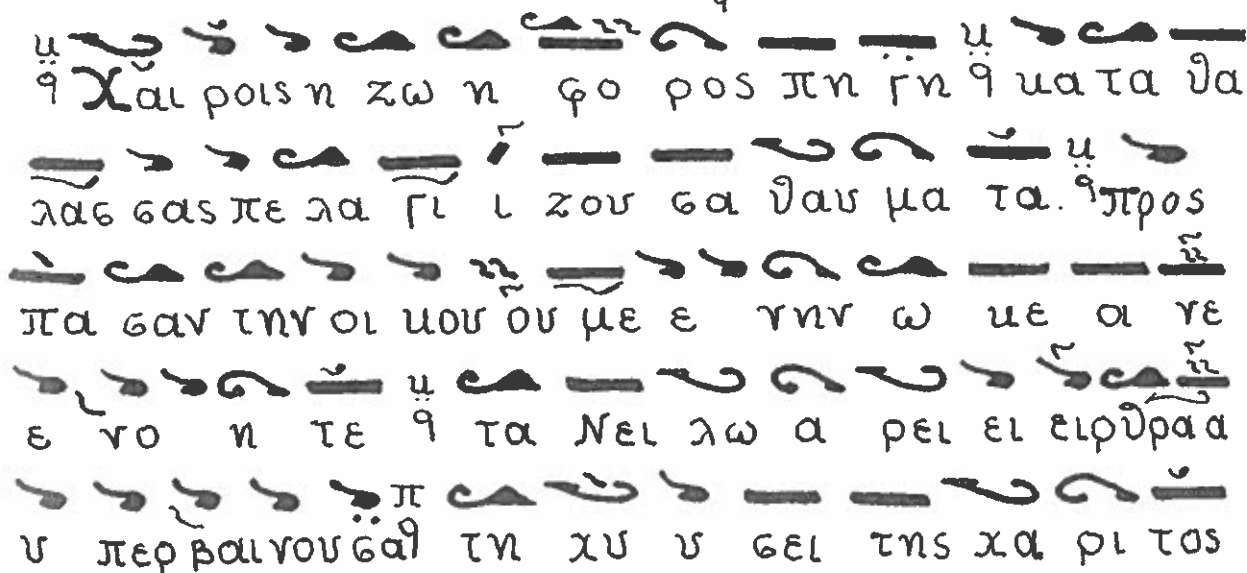 Χαι ροις η ζω η φο ρος πη γη κα τα θα
λασ σας πε λα γι ι ζου σα θαυ μα τα. προς
πα σαν την οι κου ου με ε νην ω κε οι νε
ε νο η τε τα Νει λω α ρει ει ειρυθρα α
υ περ βαινου σα τη χυ υ σει της χα ρι τος